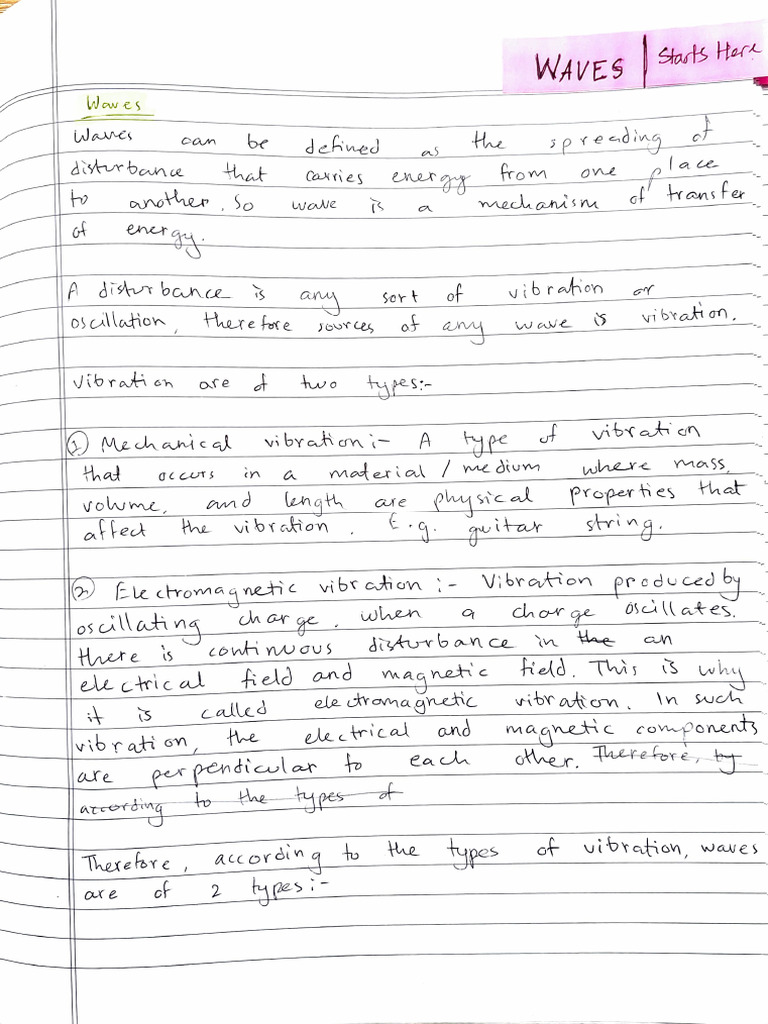 WAVES | Starts Here
Waves
Waves can be defined as the spreading of
disturbance that carries energy from one place
to another. So wave is a mechanism of transfer
of energy.
A disturbance is any sort of vibration or
oscillation, therefore sources of any wave is vibration.
Vibration are of two types:-
① Mechanical vibration:- A type of vibration
that occurs in a material / medium where mass,
volume, and length are physical properties that
affect the vibration. E.g. guitar string.
② Electromagnetic vibration:- Vibration produced by
oscillating charge. When a charge oscillates.
there is continuous disturbance in the an
electrical field and magnetic field. This is why
it is called electromagnetic vibration. In such
vibration, the electrical and magnetic components
are perpendicular to each other. Therefore, by
according to the types of
Therefore, according to the types of vibration, waves
are of 2 types:-